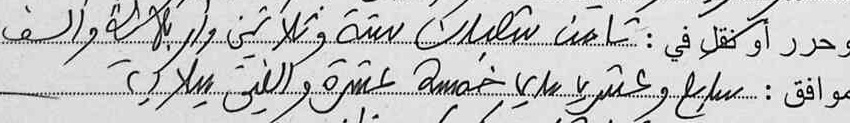 وحرر أو نقل في : ثامن شعبان ستة وثلاثين وأربعمائة وألف
موافق : سابع وعشرين ماي خمسة عشرة وألفين ميلادية